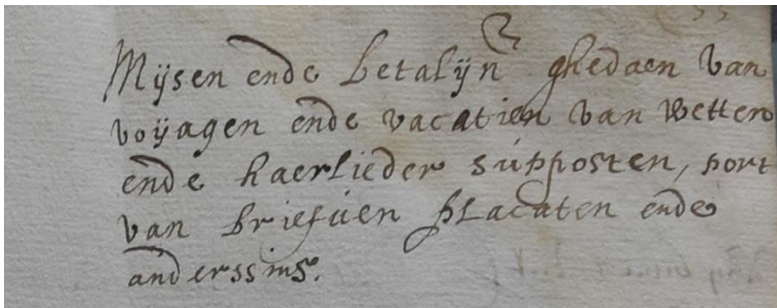 Mijsen ende betalijn ghedaen van
voijagen ende vacatien van wetten
ende haerlieder supposten, port
van briefuen placaten ende
anderssins.